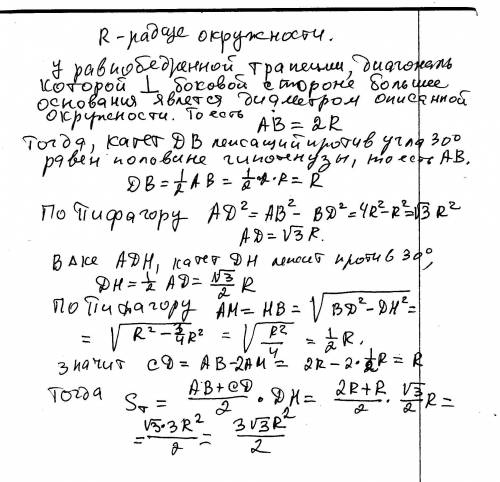 R - радиус окружности.
У равнобедренной трапеции, диагональ
которой ⊥ боковой стороне большее
основания явлется диаметром описанной
окружности. То есть
AB = 2R
Тогда, катет DB лежащий против угла 30°
равен половине гипотенузы, то есть AB.
DB = 1/2 AB = 1/2 · 2 · R = R
По Пифагору AD² = AB² - BD² = 4R² - R² = √3 R²
AD = √3 R.
В ∆ке ADH, катет DH лежит против 30°,
DH = 1/2 AD = √3/2 R
По Пифагору AM = HB = √(BD² - DH²) =
= √(R² - 3/4 R²) = √(R²/4) = 1/2 R.
значит CD = AB - 2AM = 2R - 2 · 1/2 R = R
Тогда Sт = (AB + CD)/2 · DH = (2R + R)/2 · √3/2 R =
= √3 · 3R²/2 = 3√3R²/2